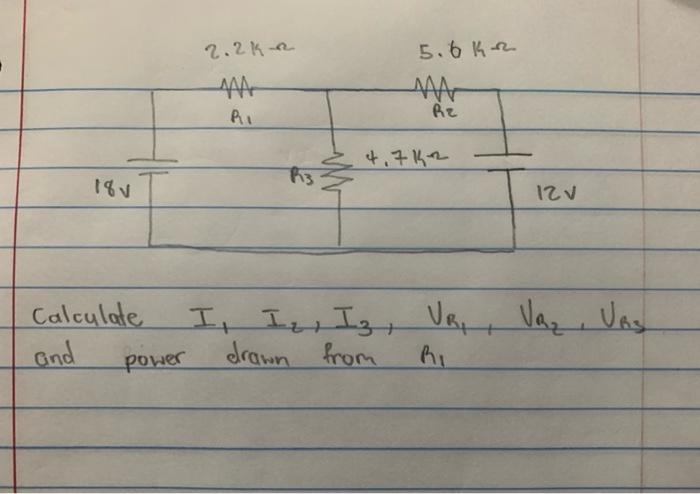 2.2KΩ 5.6KΩ
R1 R2
R3 4.7KΩ
18V 12V
Calculate I1 I2, I3, VR1, VR2, VR3
and power drawn from R1